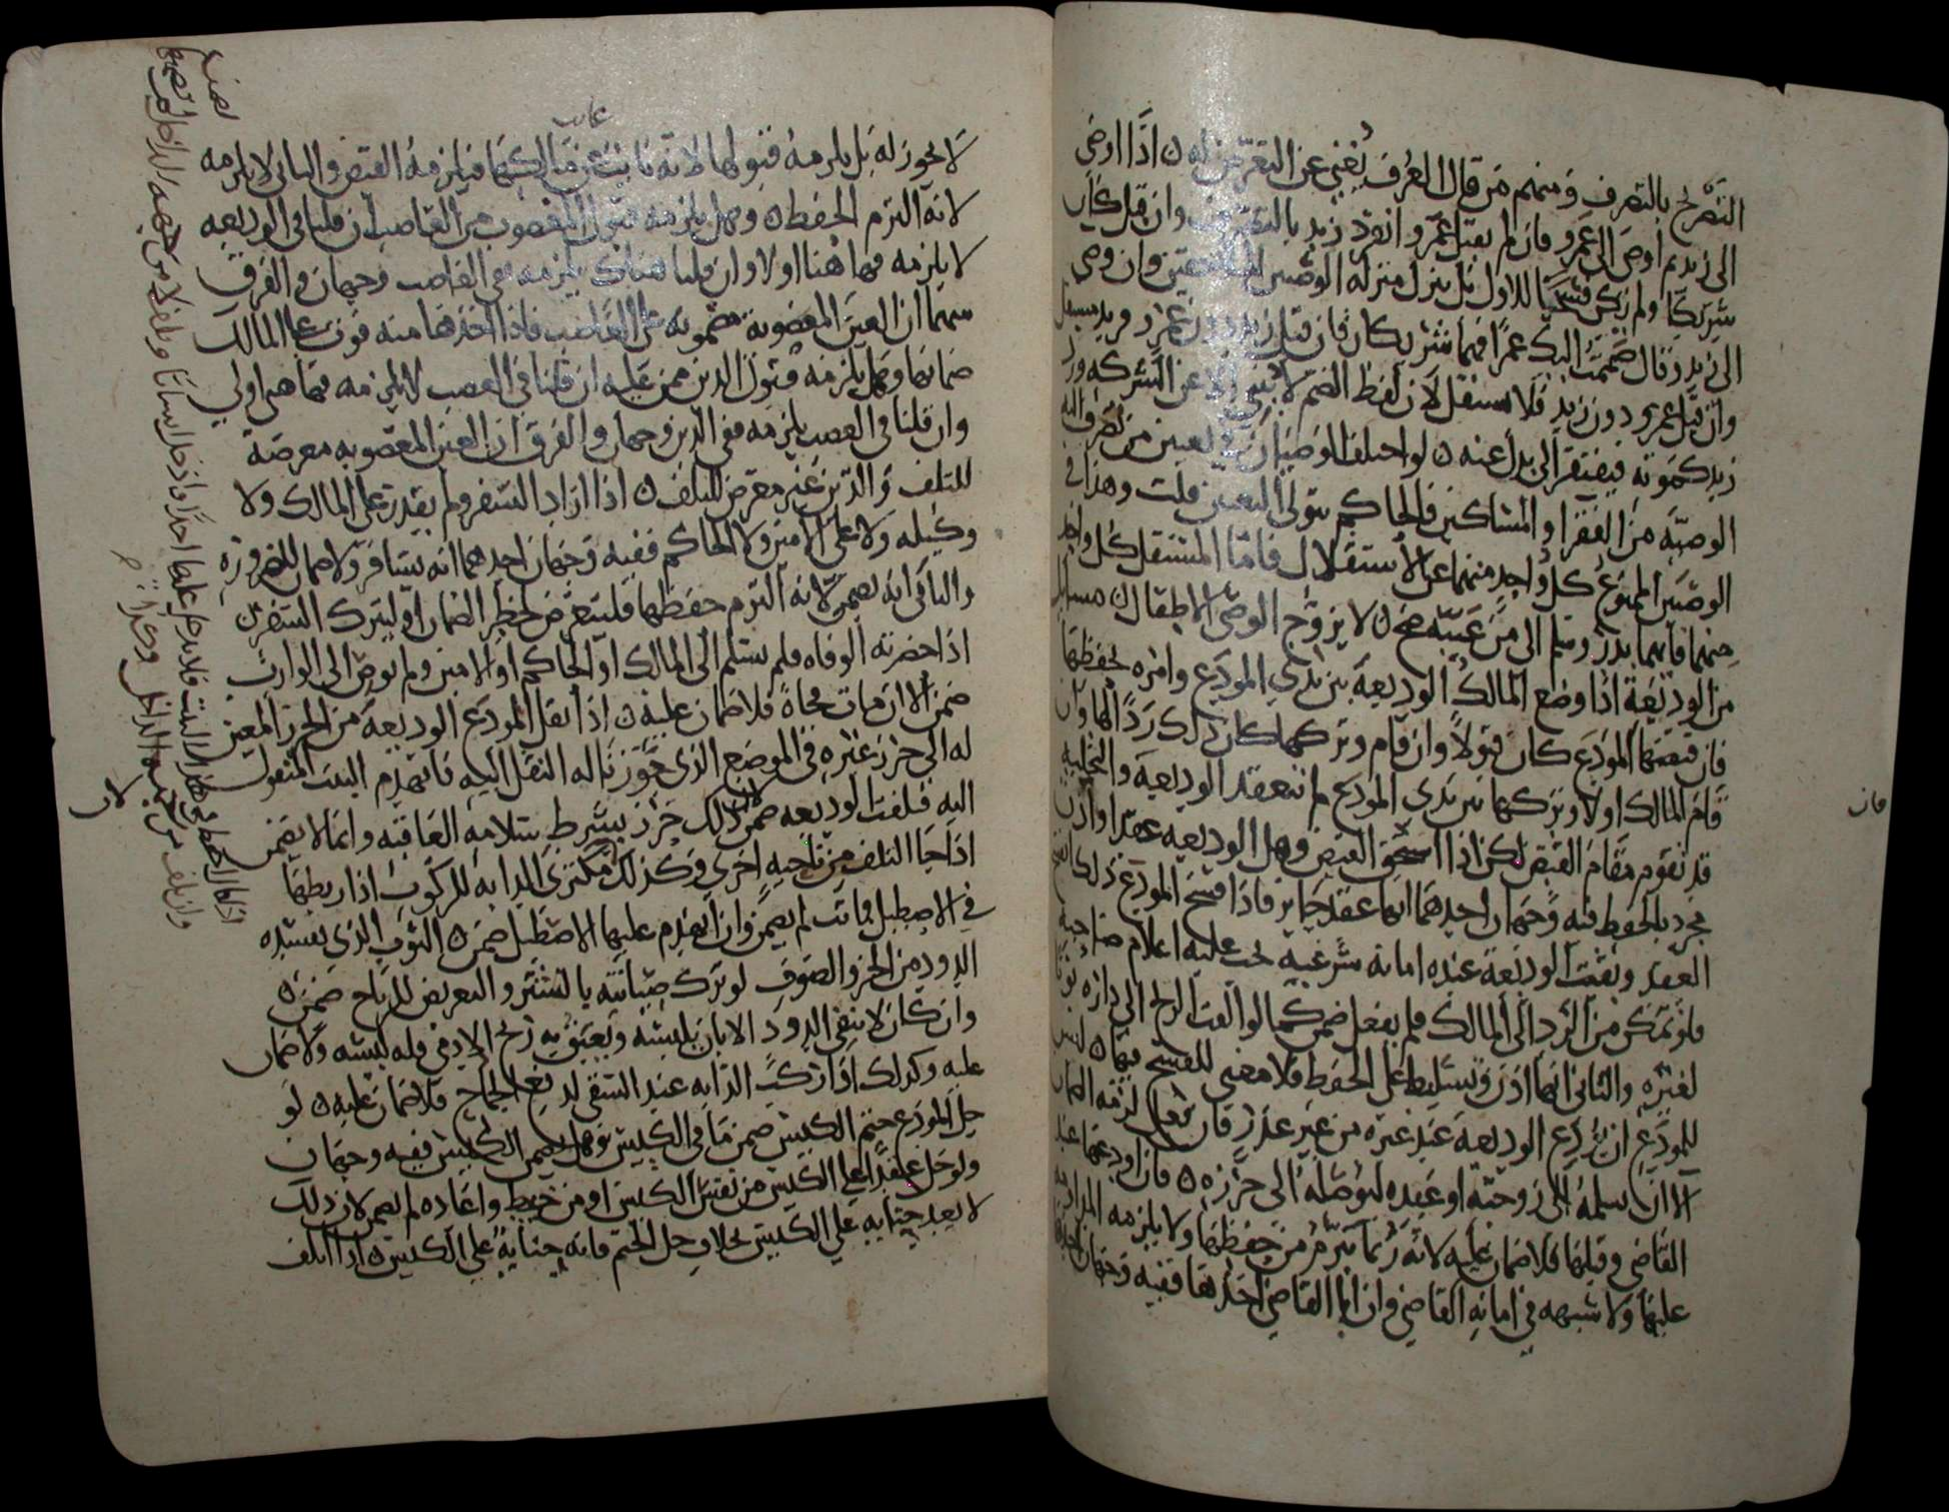 التصريح بالتصرف ومنهم من قال العرف يغني عن التعرض له ن اذا اوصى
الى زيد ثم اوصى الى عمرو فان لم يقبل عمرو انفرد زيد بالتصرف وان قبل كان
شريكا ولم يكن فسخا للاول بل ينزل منزلة الوصيين وان وصى
الى زيد ثم قال ضممت اليك عمرا فهما شريكان فان قبل زيد دون عمرو
وان قبل عمرو دون زيد فلا يستقل لان لفظ الضم لا ينبي الا عن الشركة ورد
زيد كموته فيفتقر الى بدل عنه ن لو اختلف الوصيان في تعيين من تصرف اليه
الوصية من الفقرا والمساكين فالحاكم يتولى التعيين قلت وهذا في
الوصيين الممنوع كل واحد منهما عن الاستقلال فاما المستقل كل واحد
منهما فايهما بدر وسلم الى من عينه صح ن لا يزوج الوصي الاطفال ن مسائل
من الوديعة اذا وضع المالك الوديعة بين يدي المودع وامره بحفظها
فان قبضها المودع كان قبولا وان قام وتركها كان ذلك ردا لها وان
قام المالك اولا وتركها بين يدي المودع لم تنعقد الوديعة والتخلية
قد تقوم مقام القبض لكن اذا استحق القبض وهل الوديعة عقد او اذن
مجرد بالحفظ فيه وجهان احدهما انها عقد جايز فاذا فسخ المودع ذلك
العقد وبقيت الوديعة عنده امانة شرعية يجب عليه اعلام صاحبه
فلو تمكن من الرد الى المالك فلم يفعل ضمن كما لو القت الريح الى داره ثوبا
لغيره والثاني انها اذن وتسليط على الحفظ فلا معنى للفسخ فيها ن ليس
للمودع ان يودع الوديعة عند غيره من غير عذر فان فعل لزمه الضمان
الا ان سلمها الى زوجته او عبده ليوصله الى حرزه ن فان اودعها عند
القاضي وقبلها فلا ضمان عليه لانه ربما يتبرم من حفظها ولا يلزمه المداومة
عليها ولا شبهة في امانة القاضي وان ابا القاضي اخذها ففيه وجهان احدهما
فان
غايب
لا يجوز له بل يلزمه قبولها لانه نايب عن مالكها فيلزمه القبض والثاني لا يلزمه
لانه التزم الحفظ ن وهل يلزمه قبول المغصوب من الغاصب ان قلنا في الوديعة
لا يلزمه فهاهنا اولا وان قلنا هناك يلزمه ففي الغاصب وجهان والفرق
بينهما ان العين المغصوبة مضمونة على الغاصب فاذا اخذها منه فوت على المالك
ضمانها وهل يلزمه قبول الدين ممن عليه ان قلنا في الغصب لا يلزمه فهاهنا اولى
وان قلنا في الغصب يلزمه ففي الدين وجهان والفرق ان العين المغصوبة معرضة
للتلف والدين غير معرض للتلف ن اذا اراد السفر ولم يقدر على المالك ولا
وكيله ولا على الامين ولا الحاكم ففيه وجهان احدهما انه يسافر ولا ضمان للضرورة
والثاني انه يضمن لانه التزم حفظها فليتعرض لخطر الضمان او ليترك السفر ن
اذا حضرته الوفاه فلم يسلم الى المالك او الحاكم او الامين ولم يوص الى الوارث
ضمن الا ان مات فجاة فلا ضمان عليه ن اذا نقل المودع الوديعة من الحرز المعين
له الى حرز غيره في الموضع الذي جوزنا له النقل اليه فانهدم البيت المنقول
اليه فتلفت الوديعه ضمن لان ذلك جوز بشرط سلامة العاقبه وانما لا يضمن
اذا جا التلف من ناحيه اخرى وكذلك مكتري الدابه للركوب اذا ربطها
في الاصطبل فماتت لم يضمن وان انهدم عليها الاصطبل ضمن ن الثوب الذي يفسده
الدود من الخز والصوف لو ترك صيانته بالنشر والتعريض للرياح ضمن ن
وان كان لا ينتفي الدود الا بان يلبسه ويعبق به ريح الادمي فله لبسه ولا ضمان
عليه وكذلك اذا ركب الدابه عند السقي لدفع الجماح فلا ضمان عليه ن لو
حل المودع ختم الكيس ضمن ما في الكيس وهل يضمن الكيس ففيه وجهان
ولو حل عقدا على الكيس من نفس الكيس او من خيط واعاده لم يضمن لان ذلك
لا يعد جناية على الكيس بخلاف حل الختم فانه جناية على الكيس ن اذا اتلف
لان